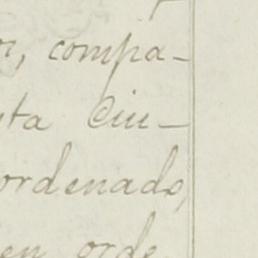 compa-
ta Ciu-
ordenado,
en orde